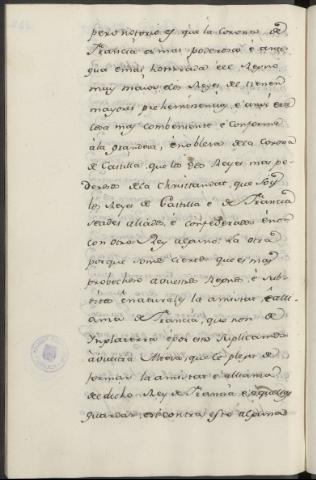 pero notorio es que la Corona de
Francia es mas poderosa é anti-
gua é mas honrrada ese Reyno
muy maior, é los Reyes del tienen
mayores preheminencias, é aun era
cosa mas combeniente é conforme
á la grandeza, é nobleza de la Corona
de Castilla que los dos Reyes mas po-
derosos de la Christiandat, que son
los Reyes de Castilla é de Francia
seades aliados, é confederados en uno
con otro Rey alguno. La otra
porque somos ciertos que es mas
probechoso a vuestros Reynos, é sub-
ditos é naturales la amistat, é alli-
anza de Francia, que non de
Inglaterra é por esso suplicamos
á vuestra Alteza, que le plega de
formar la amistat é allianza
de el dicho Rey de Francia é aquella
guardar, é si contra esto alguna